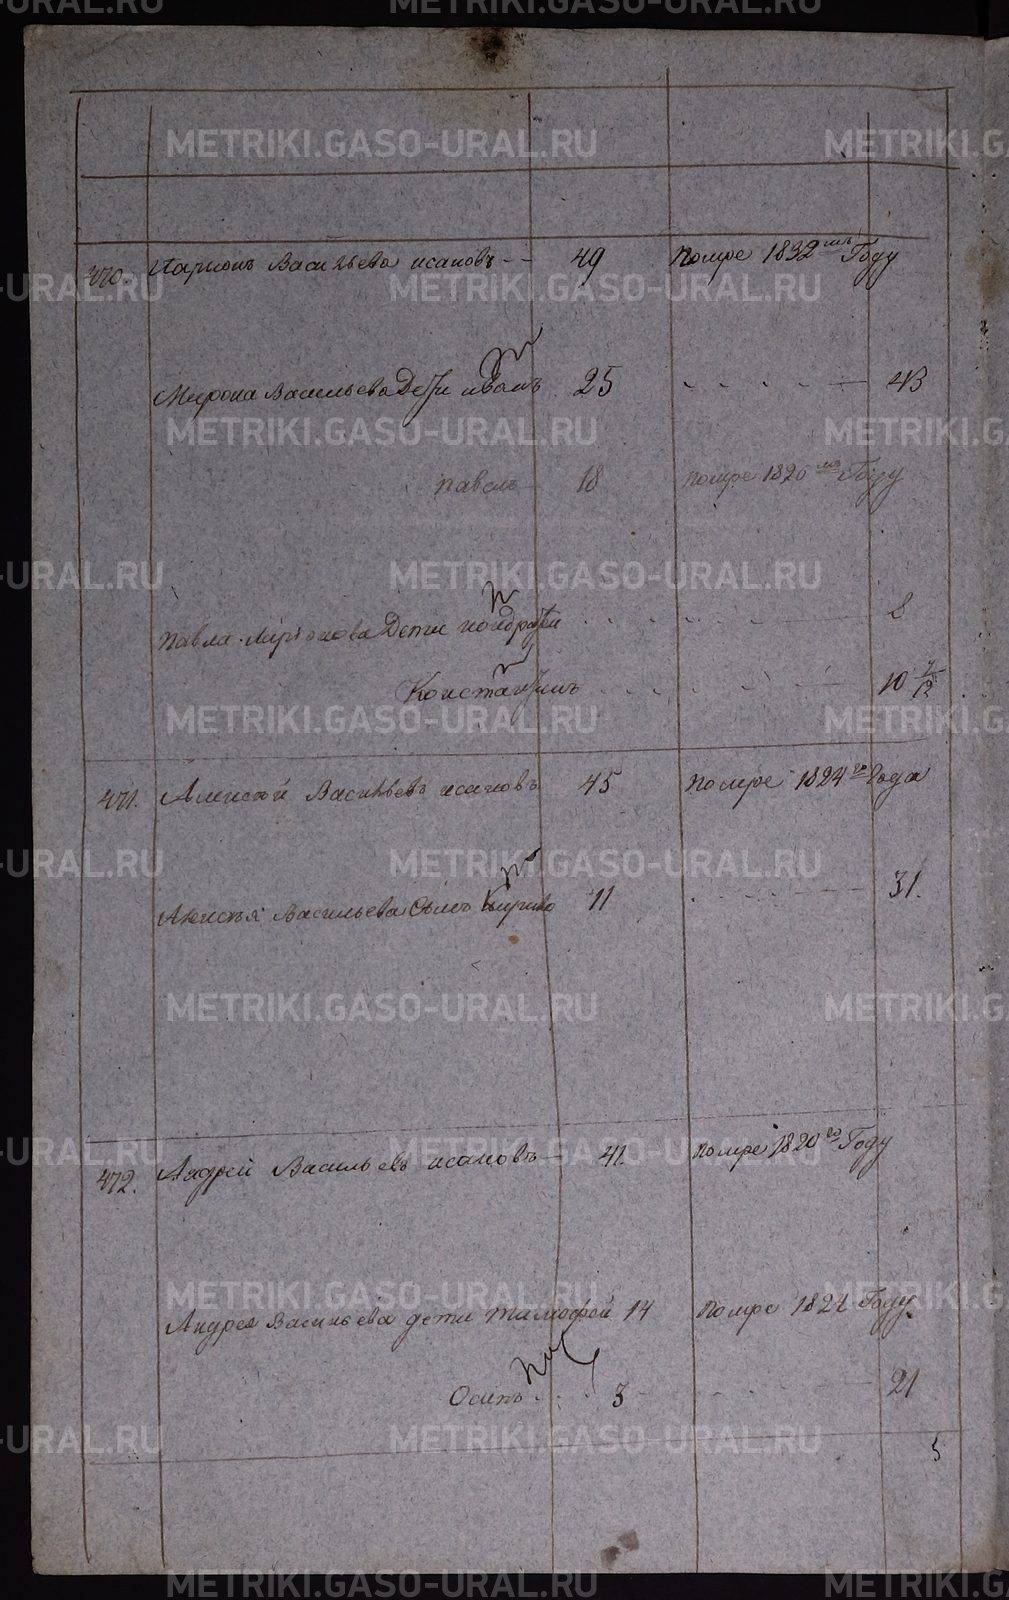 METRIKI.GASO-URAL.RU
470. Ларионъ Васильевъ исаковъ 49 помре 1832 мъ Году
Мирона Васильева Дети иванъ 25 43
павелъ 18 помре 1826 мъ Году
павла Миронова Дети кондратей 8
Константинъ 10
471. Алексей Васильевъ исаковъ 45 помре 1824 го Года
Алексея Васильева Сынъ 11 31.
472. Андрей Васильевъ исаковъ 41. помре 1820 го Году
Андрея Васильева дети тимофей 14 помре 1824 Году
Осипъ 3 21
5